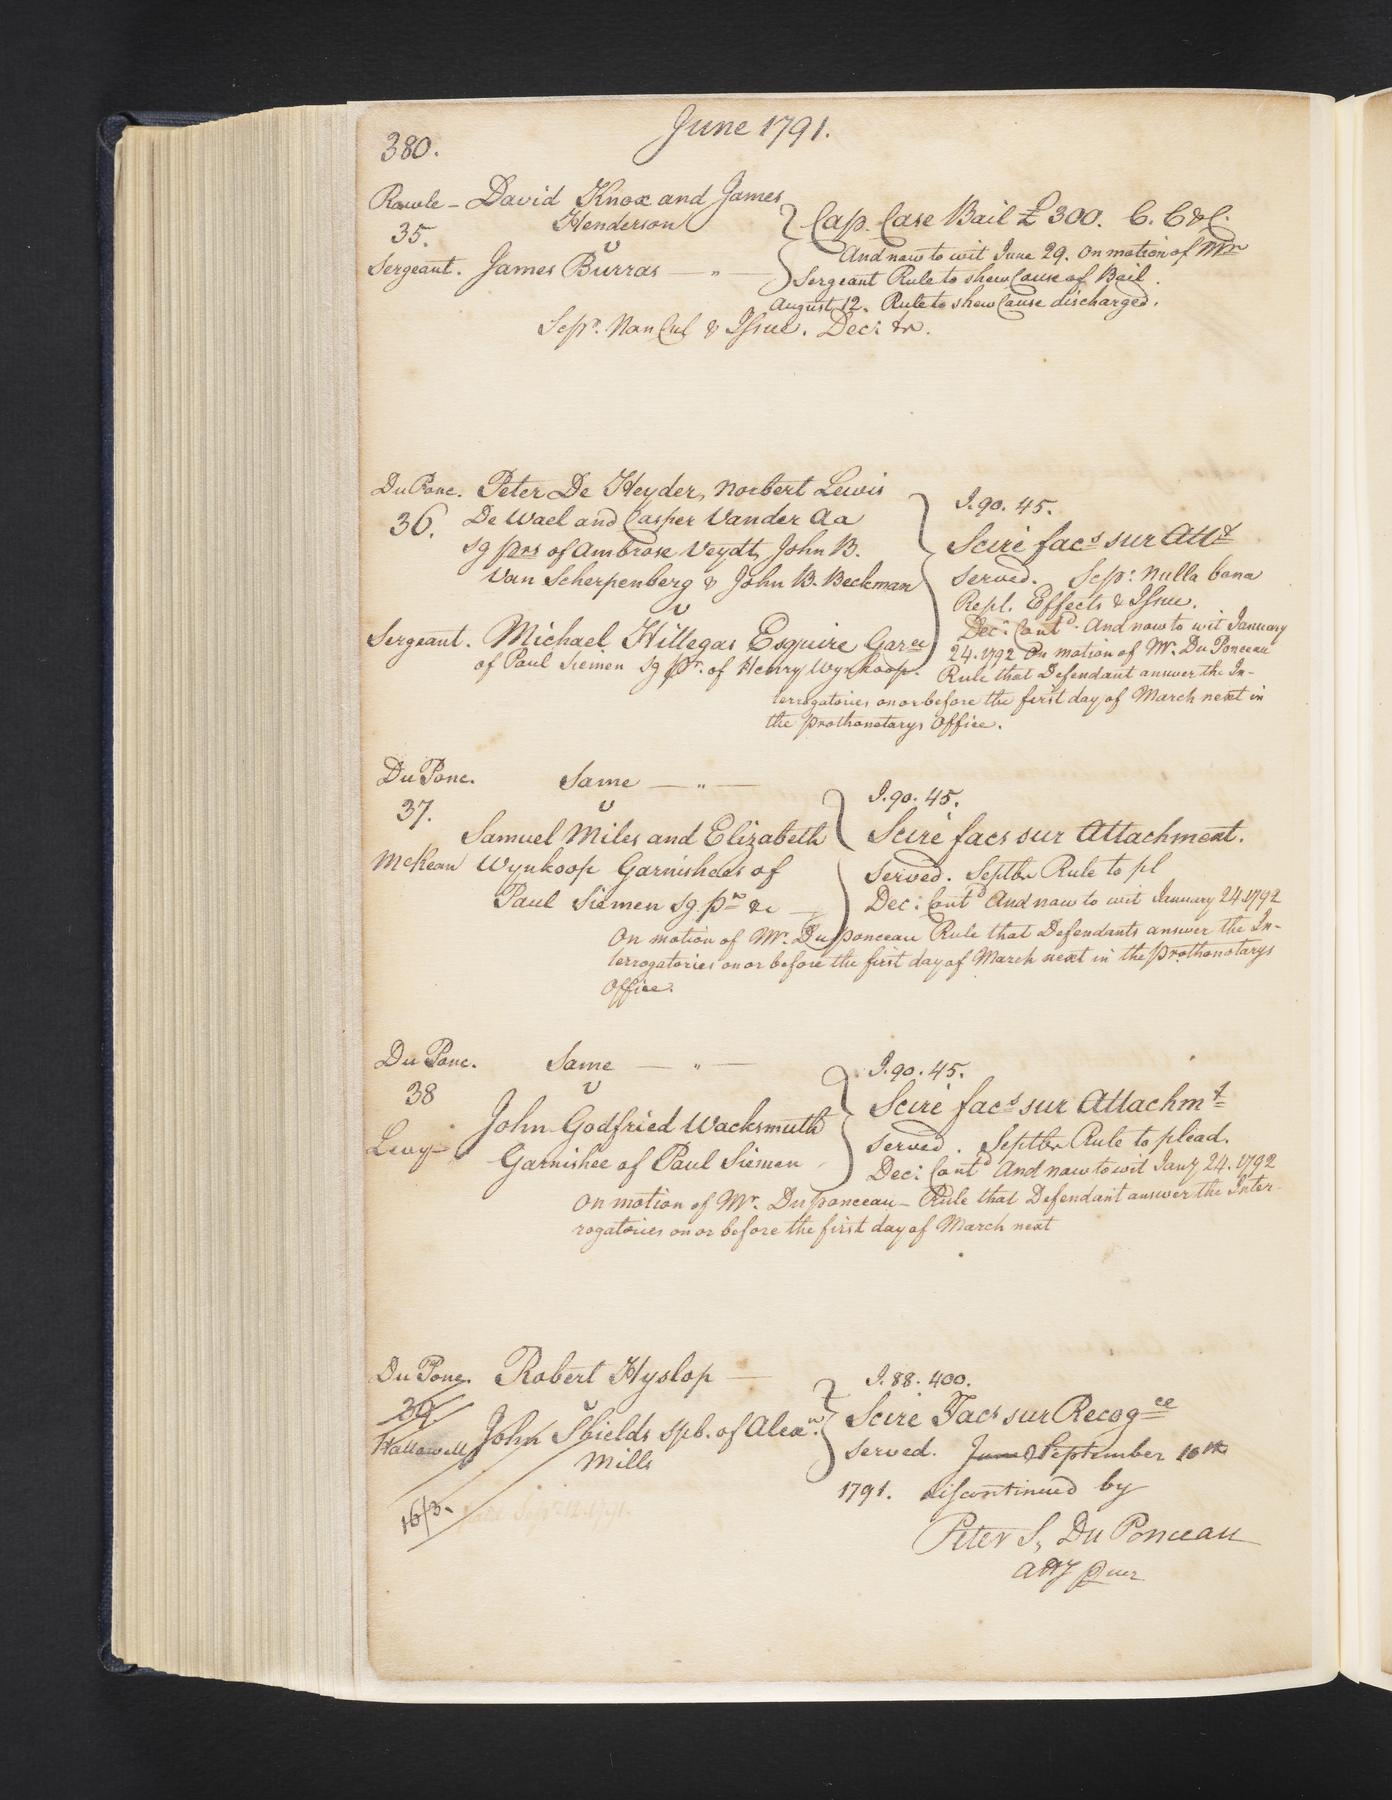 380.
June 1791.
Rawle - David Knox and James
Henderson
35.
v
Sergeant. James Burras — " —
Cap. Case Bail £300. C. C&C.
And now to wit June 29. On motion of Mr
Sergeant Rule to shew Cause of Bail.
August 12. Rule to shew Cause discharged.
Sepr. Non Cul & Issue. Dec: &c.
DuPonc. Peter De Heyder, Norbert Lewis
36. De Wael and Casper Vander Aa
sg prs of Ambrose Veydt, John B.
Van Scherpenberg & John B. Beckman
v
Sergeant. Michael Hillegas Esquire Garee
of Paul Siemen sg pr. of Henry Wynkoop.
J. 90. 45.
Scire facs sur Att
served. Sep: Nulla bona
Repl. Effects & Issue.
Dec: Contd. And now to wit January
24. 1792 On motion of Mr. Du Ponceau
Rule that Defendant answer the In-
terrogatories on or before the first day of March next in
the Prothonotarys Office.
Du Ponc. Same — " —
37.
v
Samuel Miles and Elizabeth
McKean Wynkoop Garnishees of
Paul Siemen sg pr &c
J. 90. 45.
Scire facs sur Attachment.
Served. Septbr Rule to pl
Dec: Contd And now to wit January 24. 1792
On motion of Mr. Du Ponceau Rule that Defendants answer the In-
terrogatories on or before the first day of March next in the Prothonotarys
Office.
Du Ponc. Same — " —
38
v
John Godfried Wacksmuth
Levy Garnishee of Paul Siemen
J. 90. 45.
Scire facs sur Attachmt
served. Septbr Rule to plead.
Dec: Contd And now to wit Jany 24. 1792
On motion of Mr. Du Ponceau - Rule that Defendant answer the Inter-
rogatories on or before the first day of March next
Du Ponc. Robert Hyslop —
39.
v
Hallowell John Shields spb. of Alexr.
Mills
J. 88. 400.
Scire Facs sur Recogce
served. June September 16th
1791. discontinued by
Peter S, Du Ponceau
Atty Quer
16/3.
Paid Sepr 12. 1791.